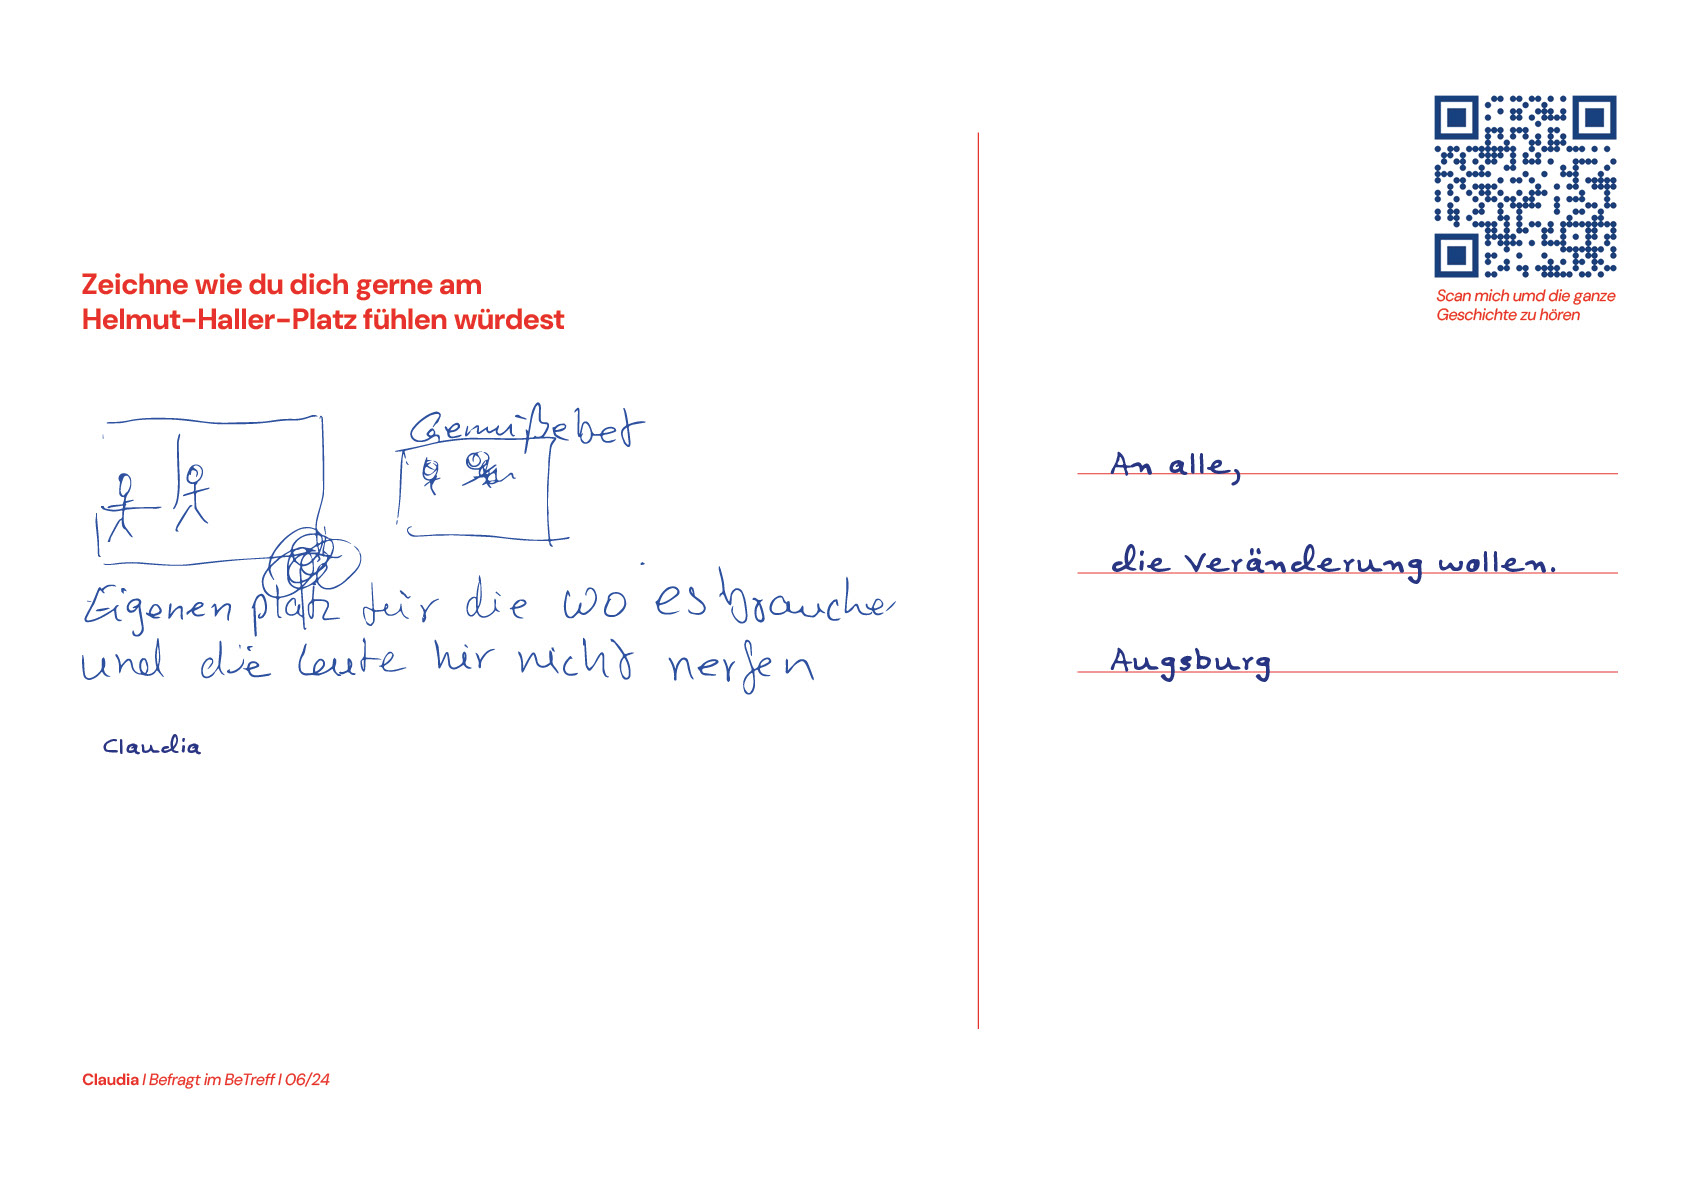 Zeichne wie du dich gerne am
Helmut-Haller-Platz fühlen würdest
Gemüßebet
Eigenen platz für die wo es brauche
und die leute hir nicht nerfen
Claudia
Claudia I Befragt im BeTreff I 06/24
Scan mich umd die ganze
Geschichte zu hören
An alle,
die Veränderung wollen.
Augsburg